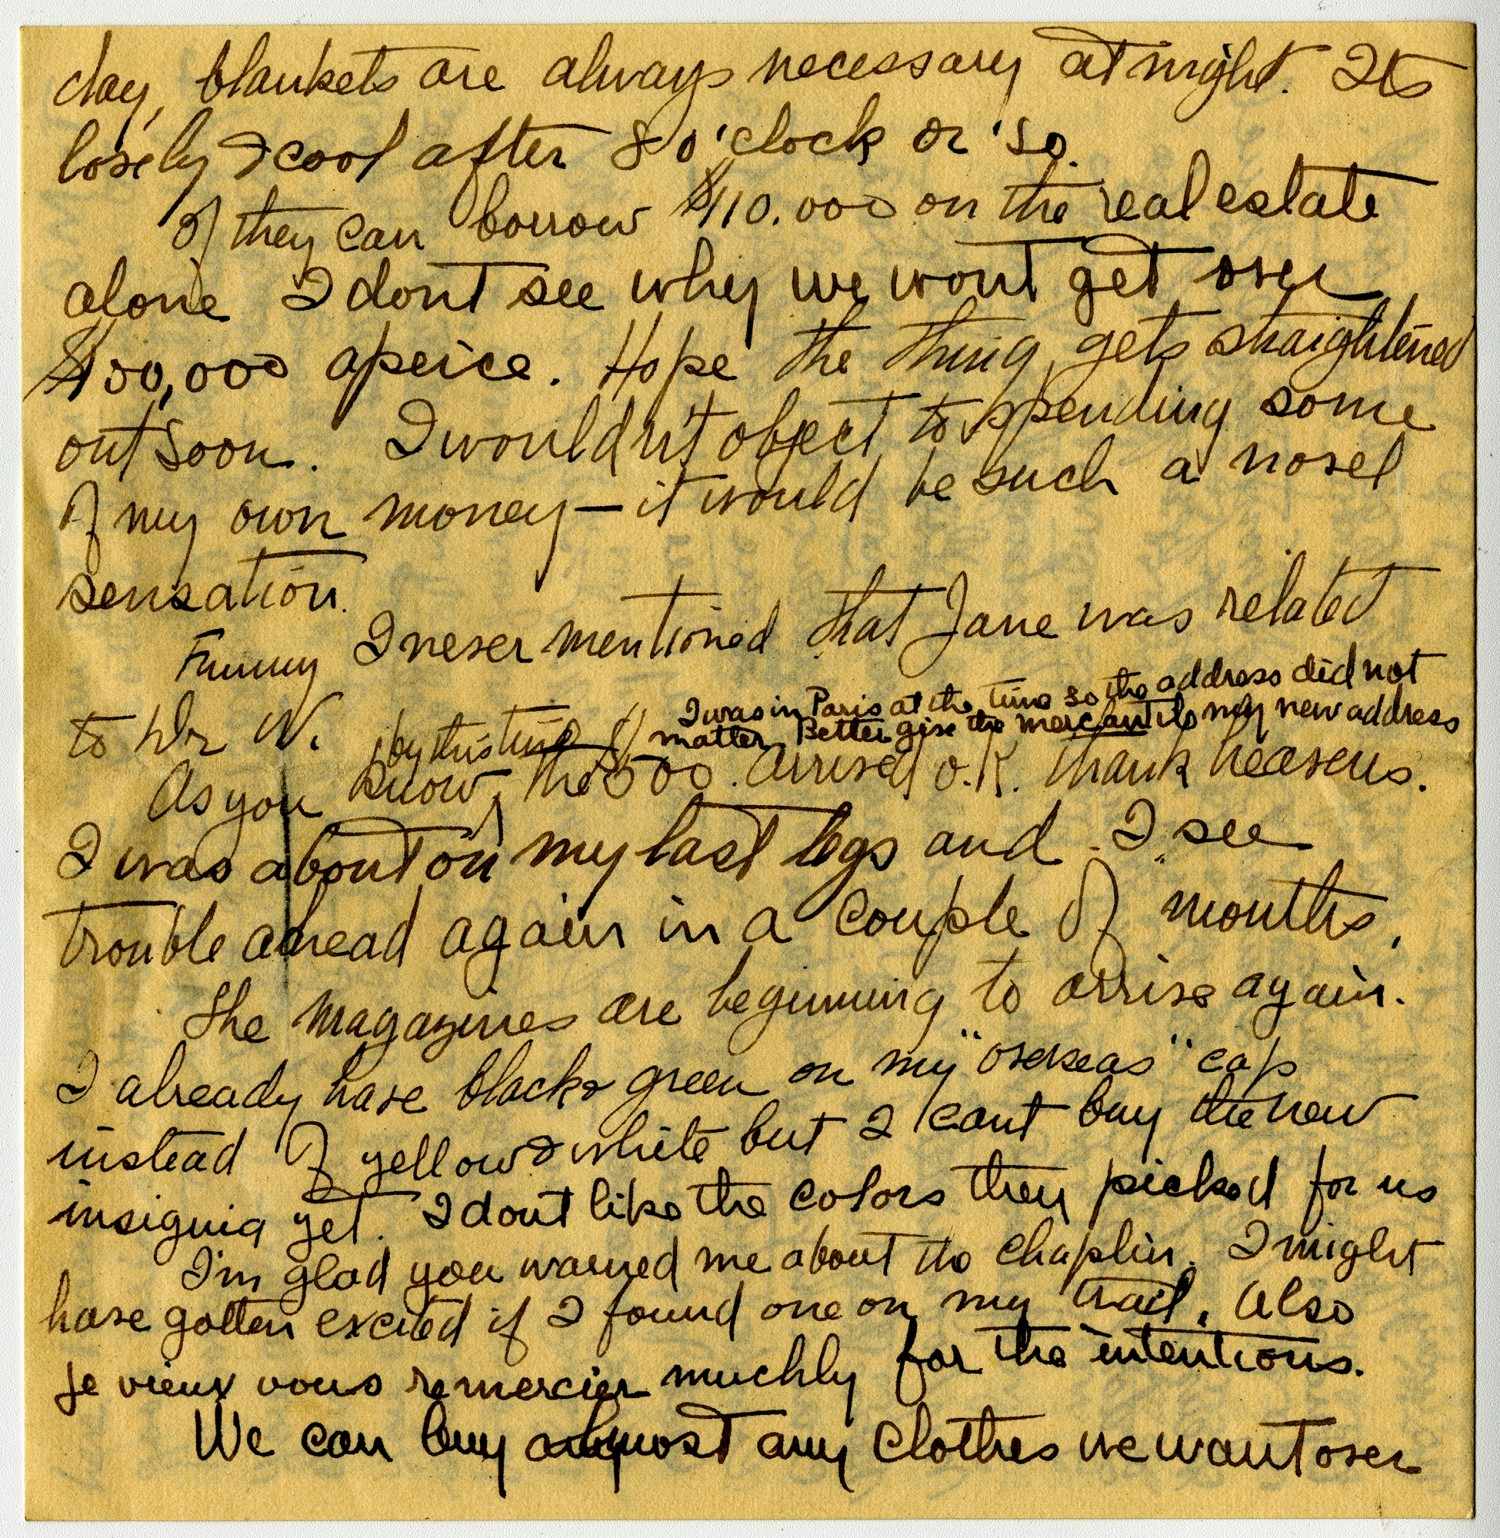 day, blankets are always necessary at night. Its
lovely & cool after 8 o'clock or so.
If they can borrow $110.000 on the real estate
alone I dont see why we wont get over
$100,000 apeice. Hope the thing gets straightened
out soon. I wouldn't object to spending some
of my own money — it would be such a novel
sensation.
Funny I never mentioned that Jane was related
to Dr W. by this time
I was in Paris at the time so the address did not
matter. Better give the mercantile my new address
As you know, the $500. arrived O.K. thank heavens.
I was about on my last legs and I see
trouble ahead again in a couple of months.
The magazines are beginning to arrive again.
I already have black & green on my "overseas" cap
instead of yellow & white but I cant buy the new
insignia yet. I dont like the colors they picked for us
I'm glad you warned me about the chaplin. I might
have gotten excited if I found one on my trail. Also
je vieux vous remercier muchly for the intentions.
We can buy almost any clothes we want over